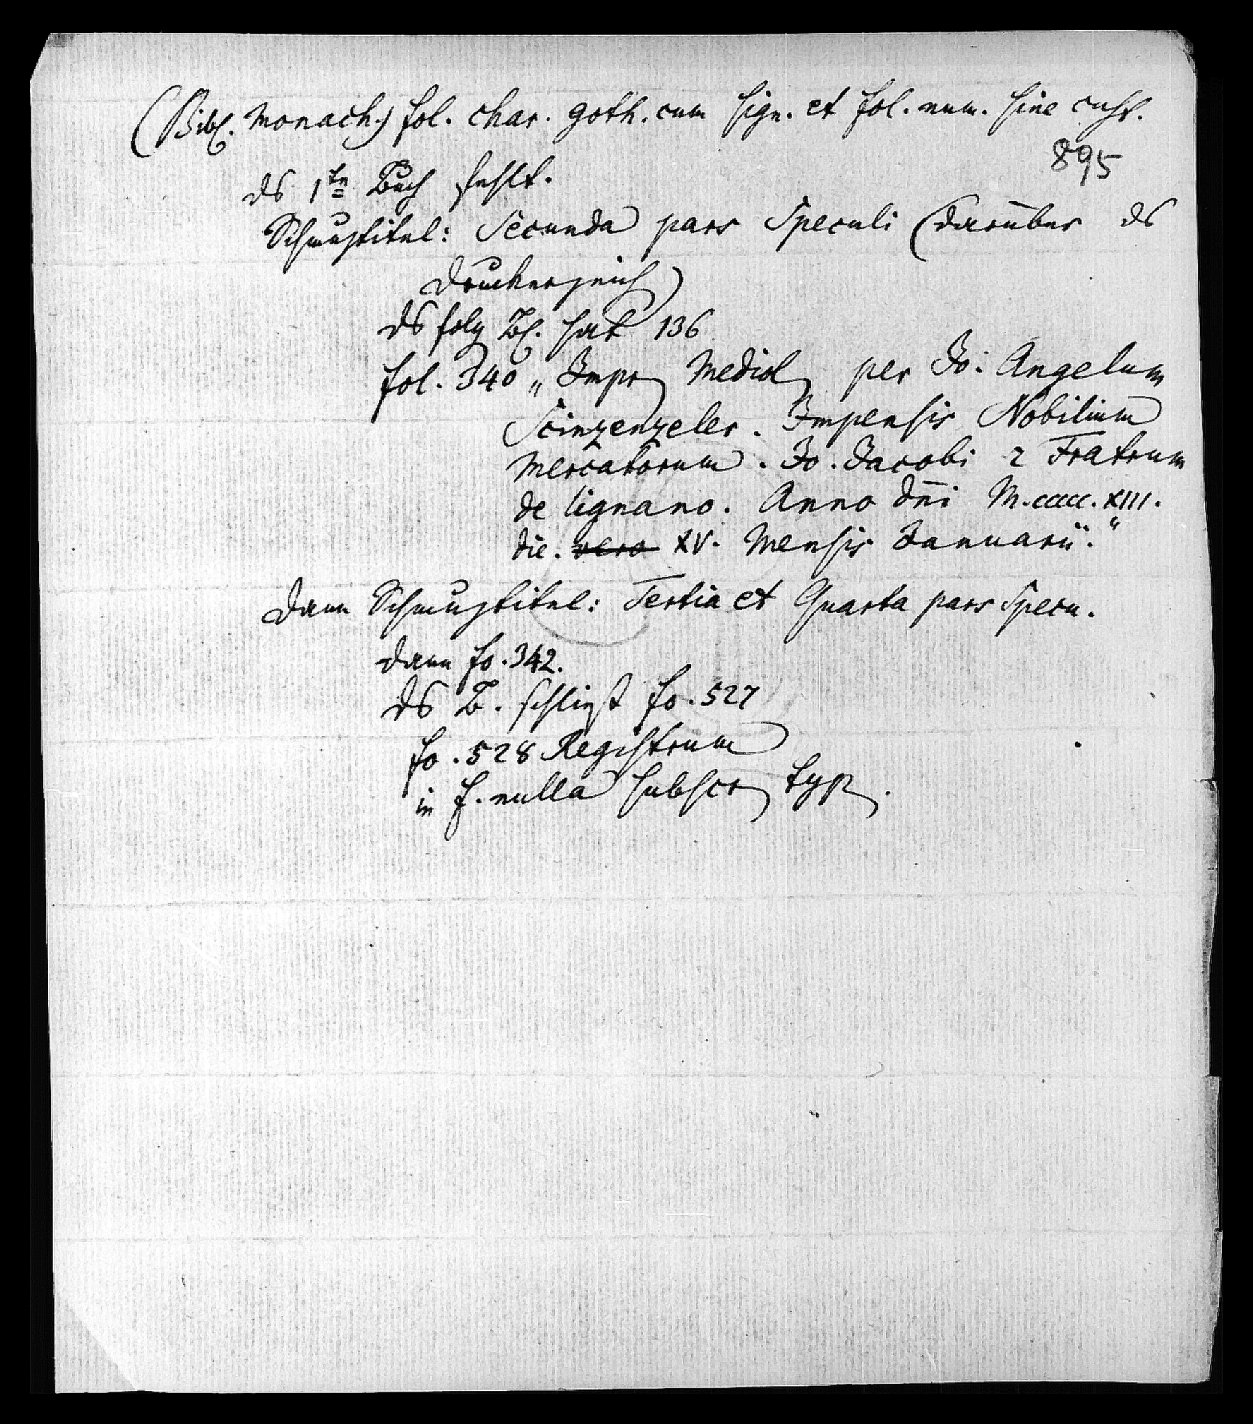 (Bibl. Monach.) fol. char. goth. cum sign. et fol. num. sine cust.
895
ds 1te Buch fehlt.
Schmuztitel: Secunda pars Speculi (darüber ds
Druckerzeich)
ds folg Bl. hat 136
fol. 340 „Impr Mediol per Jo: Angelum
Scinzenzeler. Impensis Nobilium
Mercatorum. Jo. Jacobi 2 Fratrum
de lignano. Anno dñi M.ccccc.XIII.
die. vero XV. Mensis Januarii."
dann Schmuztitel: Tertia et Quarta pars Specu.
dann fo. 342.
ds B. schliest fo. 527
fo. 528 Registrum
in f. nulla subscr typ.